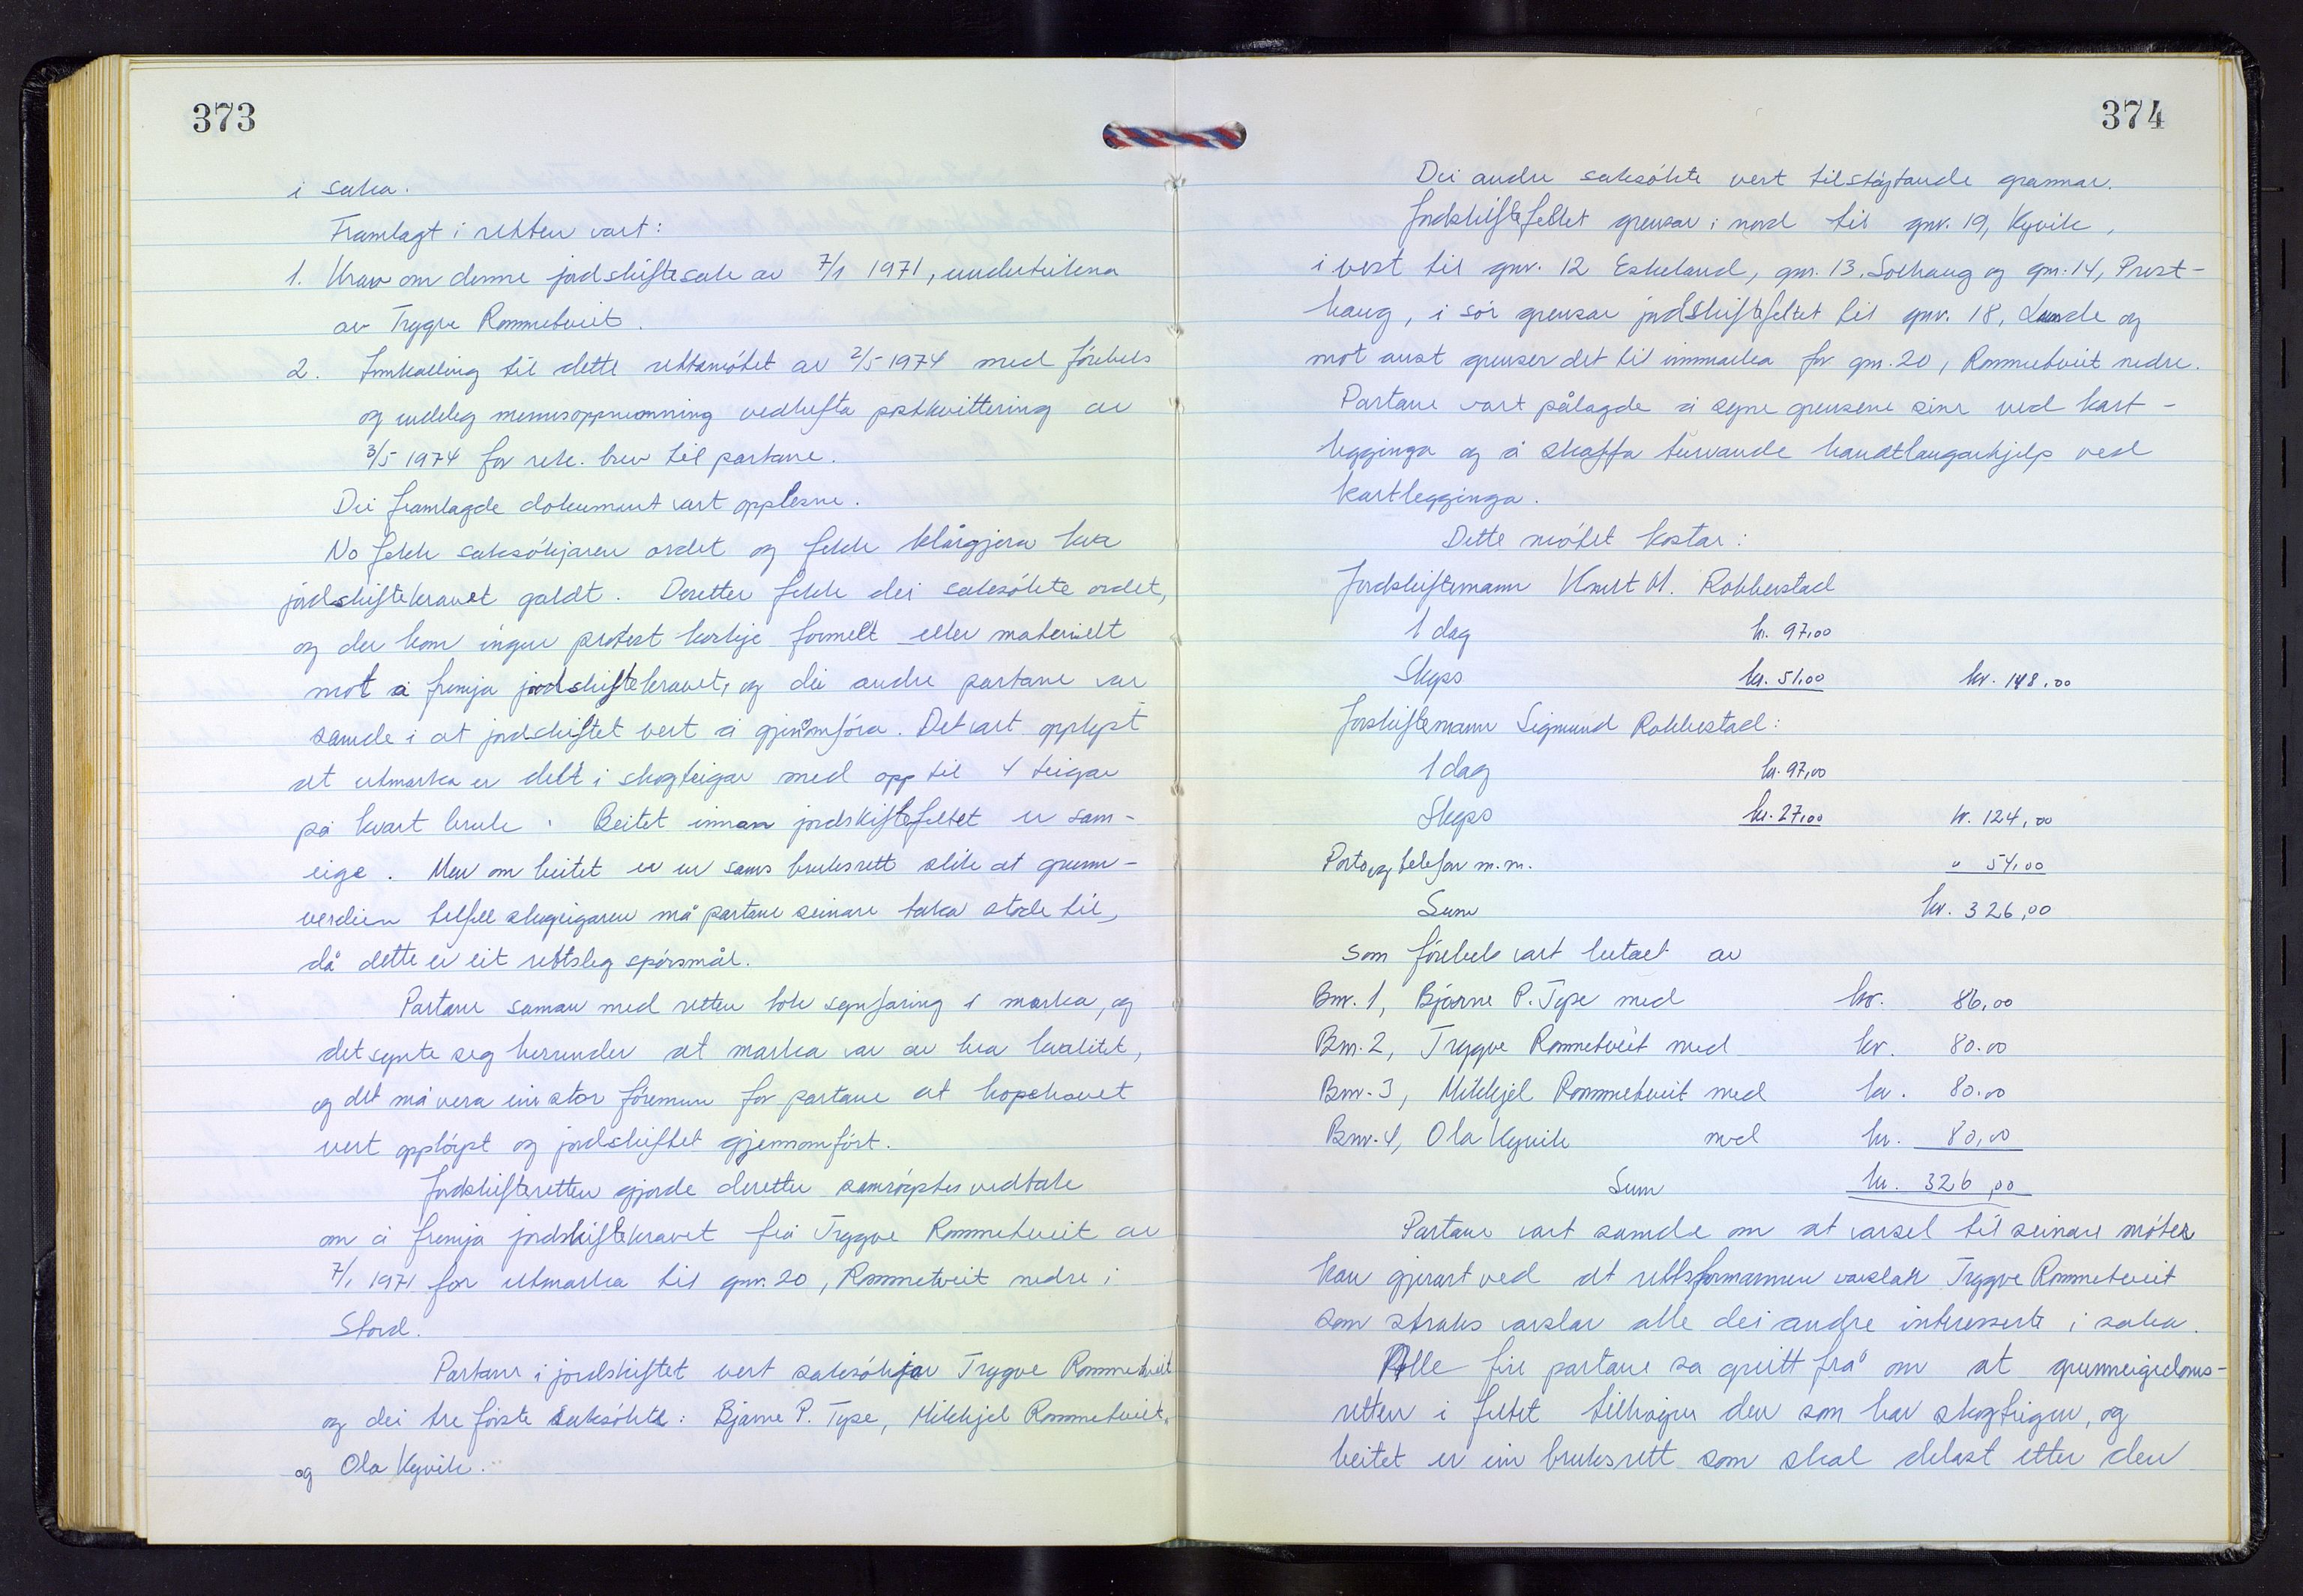 373
i saka.
Framlagt i retten vart:
1. Krav om denne jordskiftesak av 7/1 1971, underteikna
av Trygve Rommetveit.
2. Innkalling til dette rettsmötet av 2/5 1974 med förebels
og endeleg mennsoppnemning vedhefta postkvittering av
3/5 1974 for rek. brev til partane.
Dei framlagde dokument vart opplesne.
No fekk saksökjaren ordet og fekk klårgjera kva
jordskiftekravet galdt. Deretter fekk dei saksökte ordet,
og der kom ingen protest korkje formelt eller materielt
mot å fremja jordskiftekravet, og dei andre partane var
samde i at jordskiftet vert å gjennomföra. Det vart opplyst
at utmarka er delt i skogteigar med opp til 4 teigar
på kvart bruk. Beitet innan jordskiftefeltet er sam-
eige. Men om beitet er ein sams bruksrett slik at grunn-
verdien tilfell skogeigaren må partane seinare taka stode til,
då dette er eit rettsleg spörsmål.
Partane saman med retten tok synfaring i marka, og
det synte seg herunder at marka var av bra kvalitet,
og det må vera ein stor föremun for partane at hopehavet
vert opplöyst og jordskiftet gjennomfört.
Jordskifteretten gjorde deretter samröystes vedtak
om å fremja jordskiftekravet frå Trygve Rommetveit av
7/1 1971 for utmarka til gnr. 20, Rommetveit nedre i
Stord.
Partane i jordskiftet vert saksökjar Trygve Rommetveit
og dei tre förste saksökte: Bjarne P. Tyse, Mikkjel Rommetveit,
og Ola Kyvik.
374
Dei andre saksökte vert tilstöytande grannar.
Jordskiftefeltet grensar i nord til gnr. 19, Kyvik,
i vest til gnr. 12 Eskeland, gnr. 13, Solhaug og gnr. 14, Prest-
haug, i sör grensar jordskiftefeltet til gnr. 18, Lunde og
mot aust grenser det til innmarka for gnr. 20, Rommetveit nedre.
Partane vart pålagde å syne grensene sine ved kart-
legginga og å skaffa turvande handtlangarhjelp ved
kartlegginga.
Dette mötet kostar:
Jordskiftemann Knut M. Robberstad
1 dag kr. 97,00
Skyss kr. 51,00 kr. 148,00
Jorskiftemann Sigmund Robberstad:
1 dag kr. 97,00
Skyss kr. 27,00 kr. 124,00
Porto og telefon m.m. " 54,00
Sum kr. 326,00
som förebels vart betalt av
Bnr. 1, Bjarne P. Tyse med kr. 86,00
Bnr. 2, Trygve Rommetveit med kr. 80.00
Bnr. 3, Mikkjel Rommetveit med kr. 80.00
Bnr. 4, Ola Kyvik med kr. 80,00
Sum kr. 326,00
Partane vart samde om at varsel til seinare möter
kan gjerast ved at rettsformannen varslar Trygve Rommetveit
som straks varslar alle dei andre interesserte i saka.
Alle fire partane sa greitt frå om at grunneigedoms-
retten i feltet tilhöyrer den som har skogteigen, og
beitet er ein bruksrett som skal delast etter den